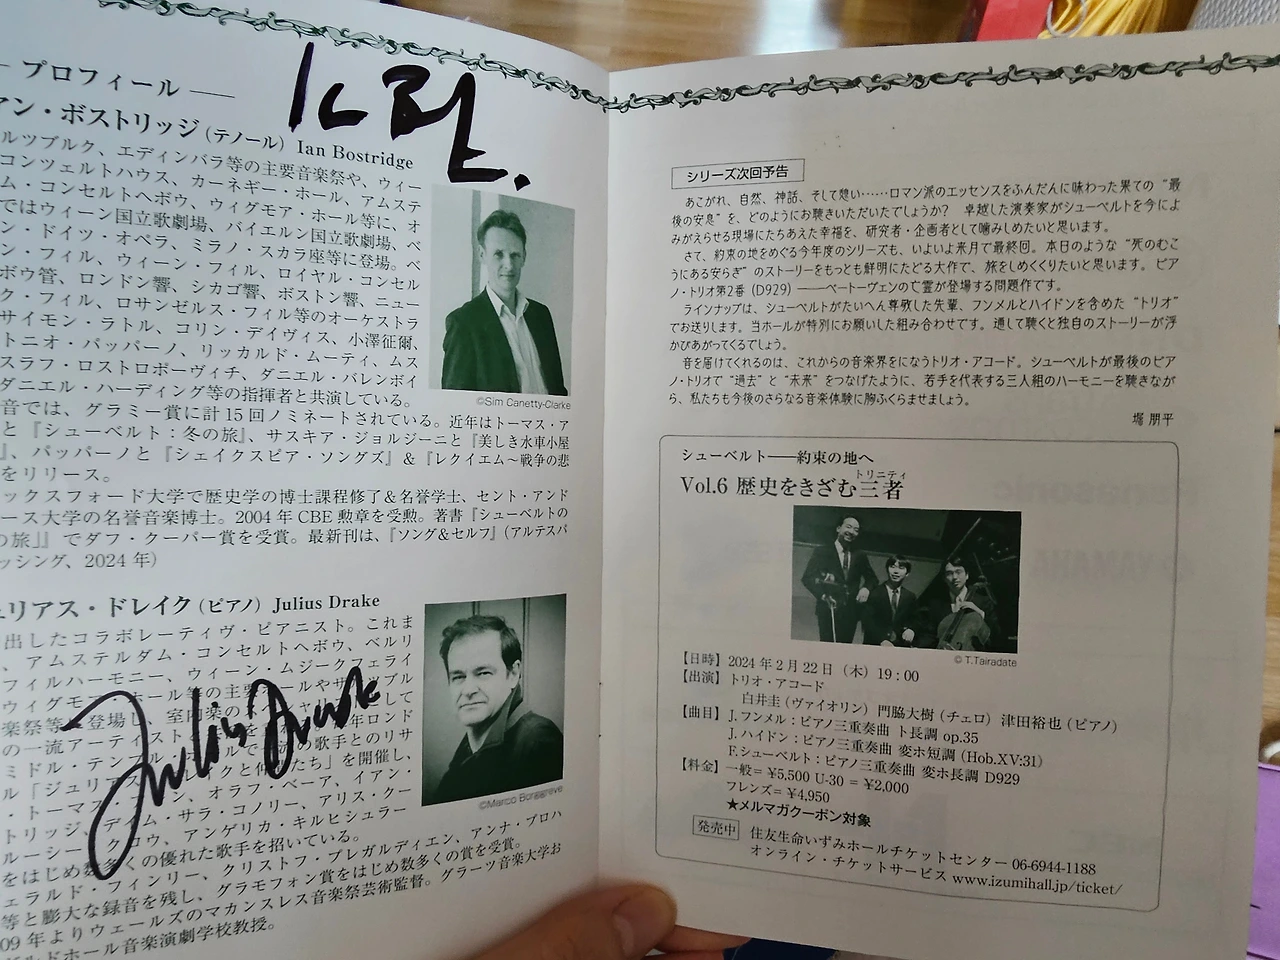 ― プロフィール ―
アン・ボストリッジ(テノール) Ian Bostridge
ルツブルク、エディンバラ等の主要音楽祭や、ウィー
コンツェルトハウス、カーネギー・ホール、アムステ
ム・コンセルトヘボウ、ウィグモア・ホール等に、オ
ではウィーン国立歌劇場、バイエルン国立歌劇場、ベ
ン・ドイツ・オペラ、ミラノ・スカラ座等に登場。ベ
ン・フィル、ウィーン・フィル、ロイヤル・コンセル
ボウ管、ロンドン響、シカゴ響、ボストン響、ニュー
ク・フィル、ロサンゼルス・フィル等のオーケストラ
サイモン・ラトル、コリン・デイヴィス、小澤征爾、
トニオ・パッパーノ、リッカルド・ムーティ、ムス
スラフ・ロストロポーヴィチ、ダニエル・バレンボイ
ダニエル・ハーディング等の指揮者と共演している。
©Sim Canetty-Clarke
音では、グラミー賞に計15回ノミネートされている。近年はトーマス・ア
と『シューベルト:冬の旅』、サスキア・ジョルジーニと『美しき水車小屋
』、パッパーノと『シェイクスピア・ソングズ』&『レクイエム〜戦争の悲
をリリース。
ックスフォード大学で歴史学の博士課程修了&名誉学士、セント・アンド
ース大学の名誉音楽博士。2004年CBE勲章を受勲。著書『シューベルトの
の旅」』でダフ・クーパー賞を受賞。最新刊は、『ソング&セルフ』(アルテスパ
ッシング、2024年)
ュリアス・ドレイク(ピアノ) Julius Drake
出したコラボレーティヴ・ピアニスト。これま
、アムステルダム・コンセルトヘボウ、ベルリ
フィルハーモニー、ウィーン・ムジークフェライ
ウィグモア・ホール等の主要ホールやザルツブル
楽祭等に登場し、室内楽の
の一流アーティスト 年ロンド
ミドル・テンプル 歌手とのリサ
ル「ジュリアス・ドレイクと仲間たち」を開催し、
・トーマス オラフ・ベーア、イアン・
トリッジ、デイム・サラ・コノリー、アリス・クー
ルーシー・クロウ、アンゲリカ・キルヒシュラー
をはじめ数多くの優れた歌手を招いている。
©Marco Borggreve
ェラルド・フィンリー、クリストフ・プレガルディエン、アンナ・プロハ
等と膨大な録音を残し、グラモフォン賞をはじめ数多くの賞を受賞。
09年よりウェールズのマカンスレス音楽祭芸術監督。グラーツ音楽大学お
ギルドホール音楽演劇学校教授。
Julius Drake
シリーズ次回予告
あこがれ、自然、神話、そして憩い……ロマン派のエッセンスをふんだんに味わった果ての“最
後の安息”を、どのようにお聴きいただいたでしょうか? 卓越した演奏家がシューベルトを今によ
みがえらせる現場にたちあえた幸福を、研究者・企画者として噛みしめたいと思います。
さて、約束の地をめぐる今年度のシリーズも、いよいよ来月で最終回。本日のような“死のむこ
うにある安らぎ”のストーリーをもっとも鮮明にたどる大作で、旅をしめくくりたいと思います。ピア
ノ・トリオ第2番(D929)――ベートーヴェンの亡霊が登場する問題作です。
ラインナップは、シューベルトがたいへん尊敬した先輩、フンメルとハイドンを含めた“トリオ”
でお送りします。当ホールが特別にお願いした組み合わせです。通して聴くと独自のストーリーが浮
かびあがってくるでしょう。
音を届けてくれるのは、これからの音楽界をになうトリオ・アコード。シューベルトが最後のピア
ノ・トリオで“過去”と“未来”をつなげたように、若手を代表する三人組のハーモニーを聴きなが
ら、私たちも今後のさらなる音楽体験に胸ふくらませましょう。
堀 朋平
シューベルト――約束の地へ
トリニティ
Vol.6 歴史をきざむ三者
© T.Tairadate
【日時】2024年2月22日(木) 19:00
【出演】トリオ・アコード
白井圭(ヴァイオリン) 門脇大樹(チェロ) 津田裕也(ピアノ)
【曲目】J.フンメル:ピアノ三重奏曲 ト長調 op.35
J.ハイドン:ピアノ三重奏曲 変ホ短調(Hob.XV:31)
F.シューベルト:ピアノ三重奏曲 変ホ長調 D929
【料金】一般=¥5,500 U-30=¥2,000
フレンズ=¥4,950
★メルマガクーポン対象
発売中 住友生命いずみホールチケットセンター 06-6944-1188
オンライン・チケットサービス www.izumihall.jp/ticket/